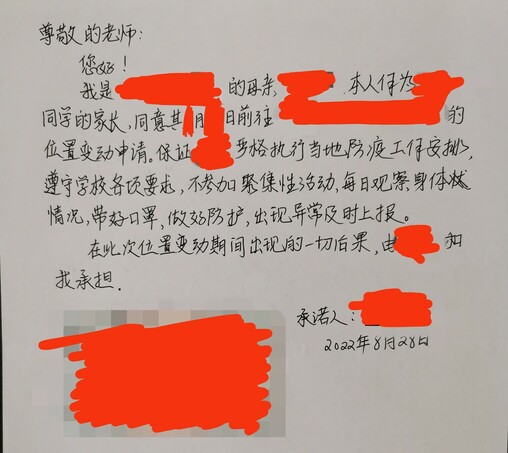 尊敬的老师:
您好!
我是 的母亲, 本人作为
同学的家长,同意其 月 日前往 的
位置变动申请。保证 严格执行当地防疫工作安排,
遵守学校各项要求,不参加聚集性活动,每日观察身体状
情况,带好口罩,做好防护,出现异常及时上报。
在此次位置变动期间出现的一切后果,由 和
我承担.
承诺人:
2022年8月28日